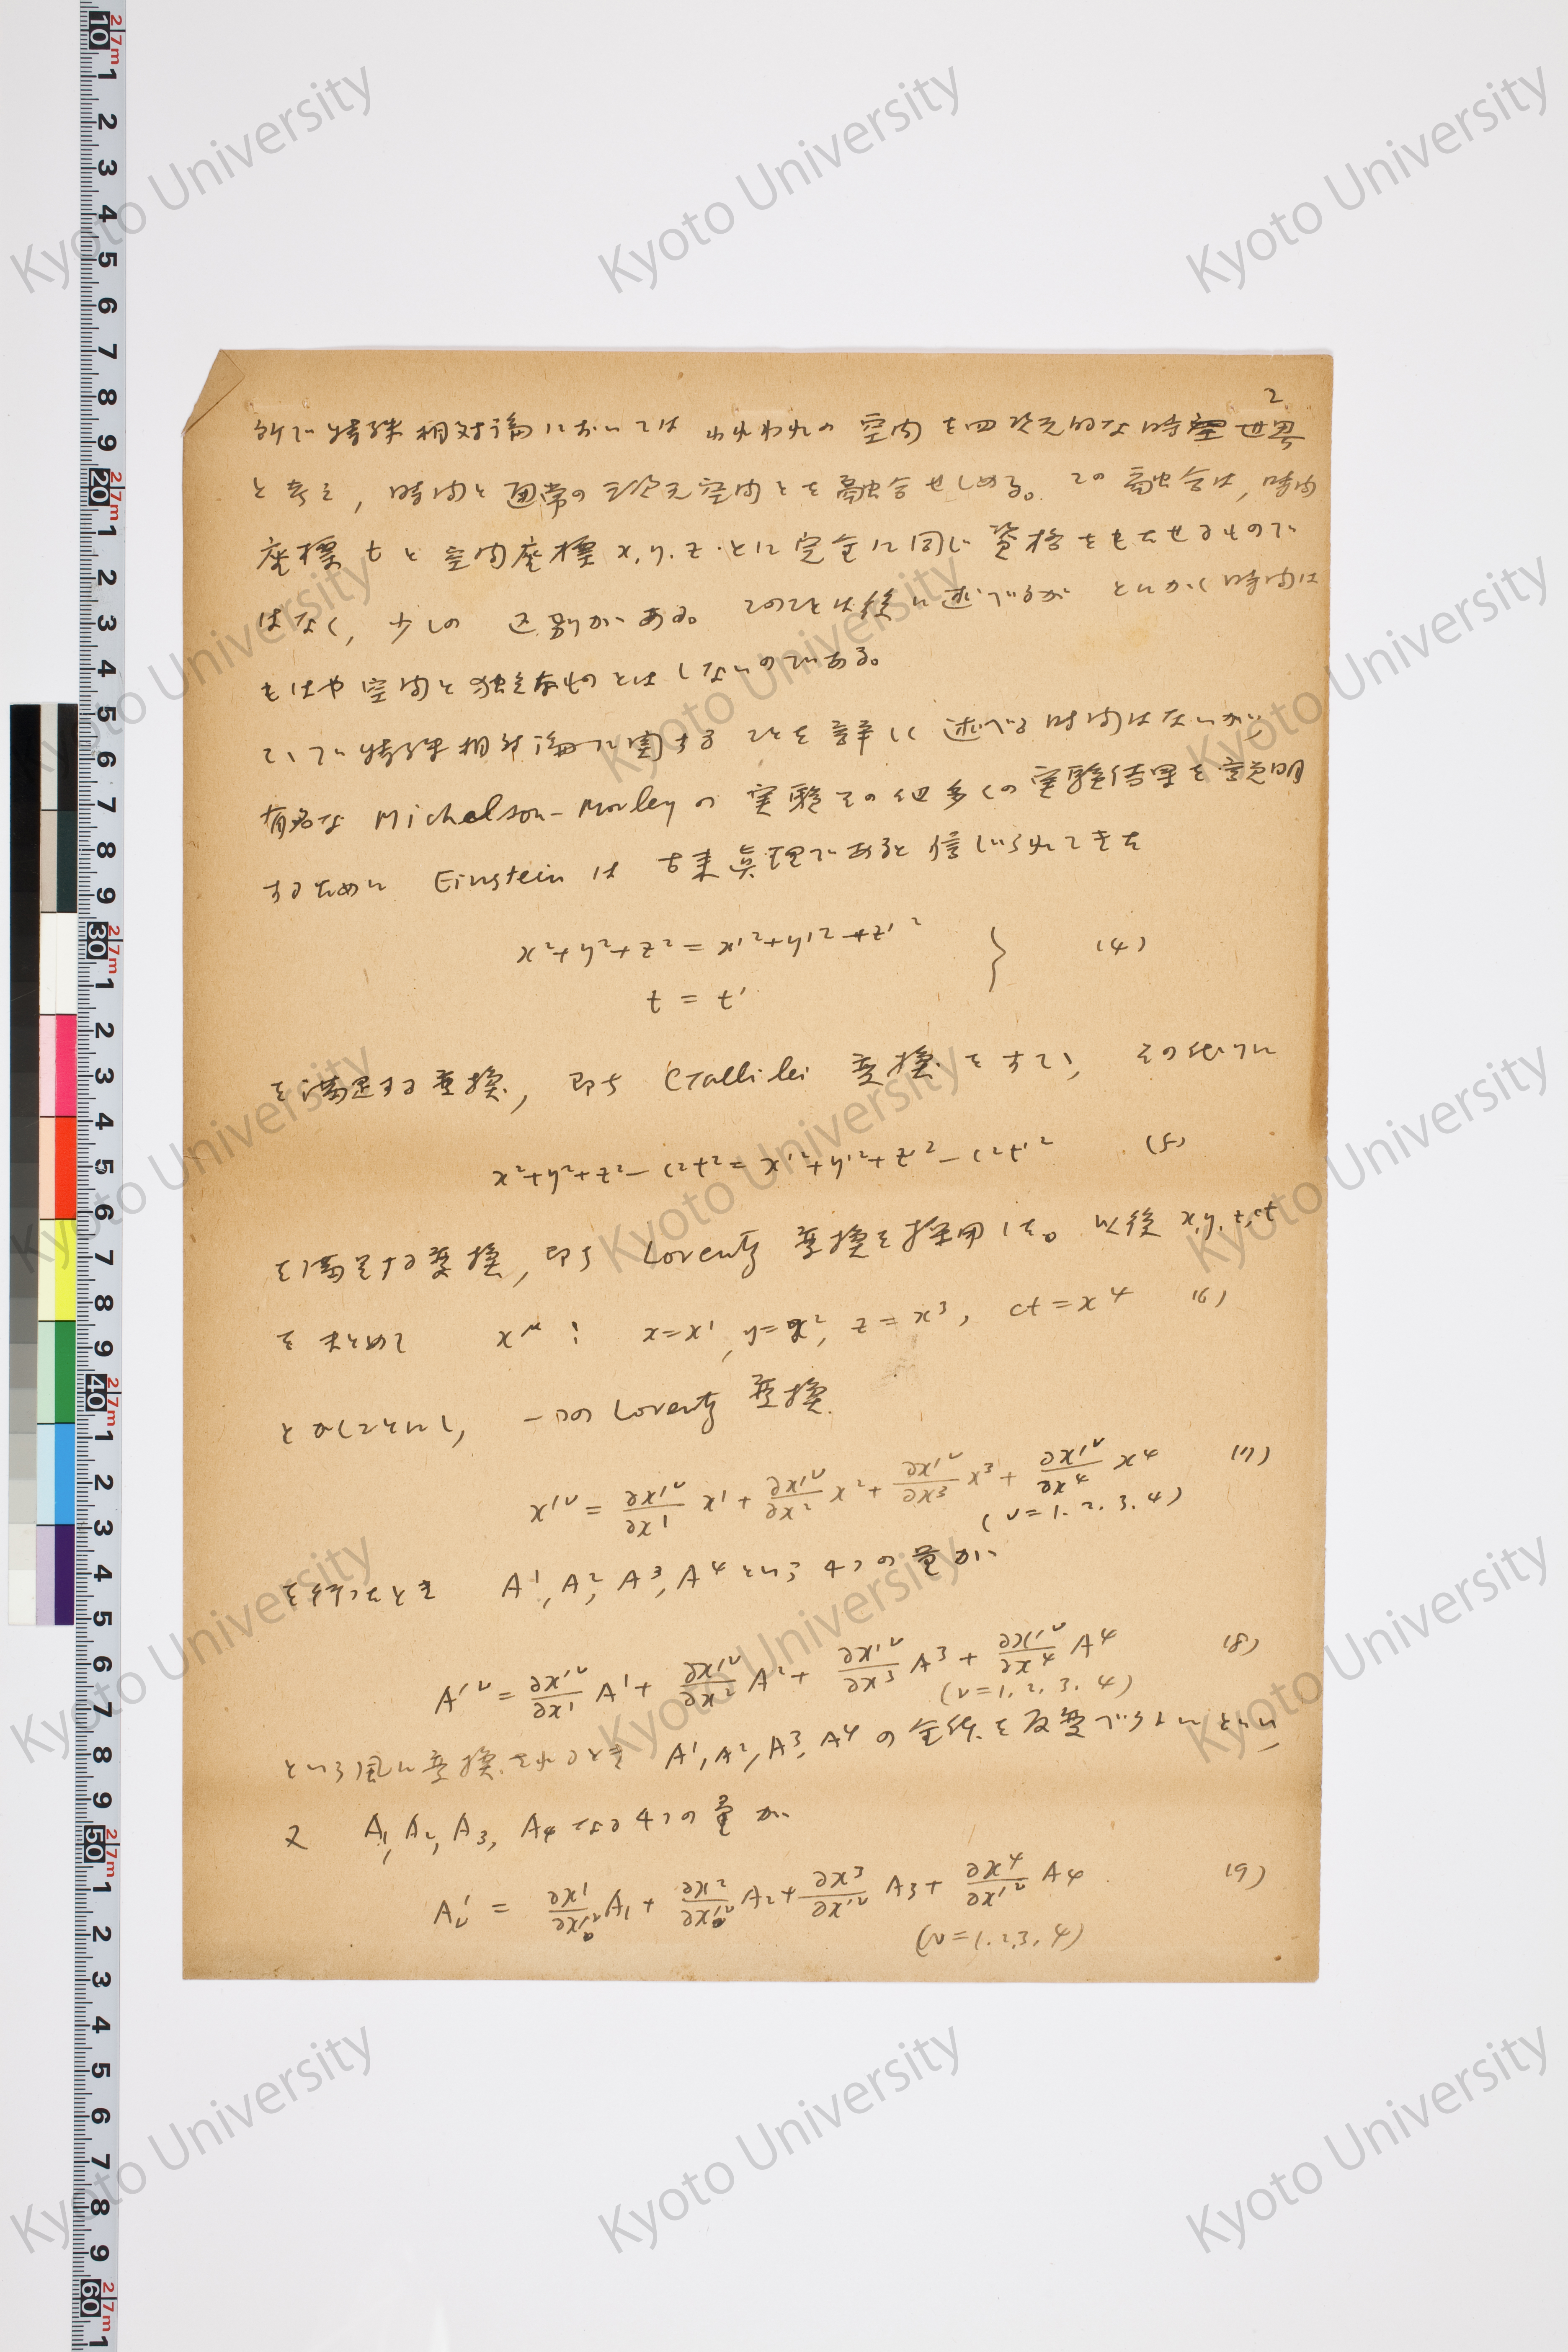 2
所で特殊相対論においては われわれの 空間を四次元的な時空世界
と考え, 時間と通常の三次元空間とを融合せしめる。この融合は, 時間
座標 t と 空間座標 x.y.z.とに完全に同じ資格をもたせるもので
はなく, 少しの 区別がある。このことは後に述べるが とにかく時間は
もはや空間と独立なものとはしないのである。
こゝで特殊相対論に関することを詳しく述べる時間はないが,
有名な Michelson-Morley の 実験その他多くの実験結果を説明
するために Einstein は 古来眞理であると信じられてきた
x²+y²+z² = x'²+y'²+z'² } (4)
t = t'
を満足する変換, 即ち Gallilei 変換をすて, その代りに
x²+y²+z²-c²t² = x'²+y'²+z'²-c²t'² (5)
を満足する変換, 即ち Lorentz 変換を採用した。以後 x.y.z,ct
をまとめて x^μ : x=x¹, y=x², z=x³, ct=x⁴ (6)
とかくことにし, 一つの Lorentz 変換
x'^ν = ∂x'^ν/∂x¹ x¹ + ∂x'^ν/∂x² x² + ∂x'^ν/∂x³ x³ + ∂x'^ν/∂x⁴ x⁴ (7)
(ν=1.2.3.4)
を行ったとき A¹, A², A³, A⁴ という 4つの量が
A'^ν = ∂x'^ν/∂x¹ A¹ + ∂x'^ν/∂x² A² + ∂x'^ν/∂x³ A³ + ∂x'^ν/∂x⁴ A⁴ (8)
(ν=1.2.3.4)
という風に変換されるとき A¹, A², A³, A⁴ の全体を反変ベクトルといい,
又 A₁, A₂, A₃, A₄ なる4つの量が
A'_ν = ∂x¹/∂x'^ν A₁ + ∂x²/∂x'^ν A₂ + ∂x³/∂x'^ν A₃ + ∂x⁴/∂x'^ν A₄ (9)
(ν=1.2.3.4)
Kyoto University